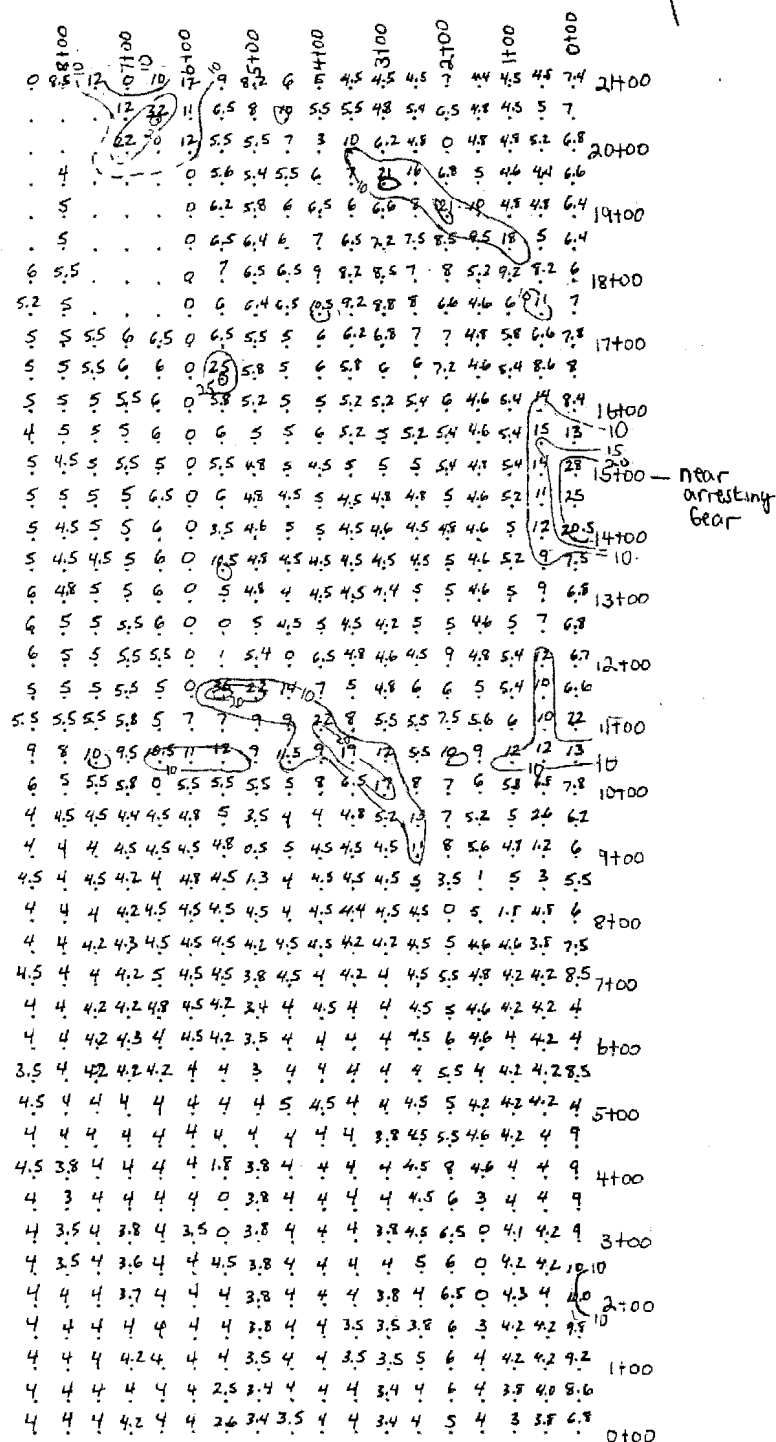 8+00 7+00 6+00 5+00 4+00 3+00 2+00 1+00 0+00
10 10 10
0 8.5 12 0 10 12 9 8.2 6 5 4.5 4.5 4.5 7 4.4 4.5 4.8 7.4 21+00
12 32 11 6.5 8 10 5.5 5.5 4.8 5.4 6.5 4.8 4.5 5 7
22 0 12 5.5 5.5 7 3 10 6.2 4.8 0 4.8 4.8 5.2 6.8 20+00
4 0 5.6 5.4 5.5 6 7 21 16 6.8 5 4.6 4.4 6.6
5 0 6.2 5.8 6 6.5 6 6.6 8 21 10 4.8 4.8 6.4 19+00
5 0 6.5 6.4 6 7 6.5 7.2 7.5 8.5 9.5 18 5 6.4
6 5.5 0 7 6.5 6.5 9 8.2 8.5 7 8 5.2 9.2 8.2 6 18+00
5.2 5 0 6 6.4 6.5 10.5 9.2 8.8 8 6.6 4.6 6 11 7
5 5 5.5 6 6.5 0 6.5 5.5 5 6 6.2 6.8 7 7 4.8 5.8 6.6 7.8 17+00
5 5 5.5 6 6 0 25 5.8 5 6 5.8 6 6 7.2 4.6 5.4 8.6 8
25
5 5 5 5.5 6 0 5.8 5.2 5 5 5.2 5.2 5.4 6 4.6 5.4 14 8.4 16+00
4 5 5 5 6 0 6 5 5 6 5.2 5 5.2 5.4 4.6 5.4 15 13 10
15
20
5 4.5 5 5.5 5 0 5.5 4.8 5 4.5 5 5 5 5.4 4.8 5.4 14 28 15+00 — near
arresting
gear
5 5 5 5 6.5 0 6 4.8 4.5 5 4.5 4.8 4.8 5 4.6 5.2 11 25
5 4.5 5 5 6 0 3.5 4.6 5 5 4.5 4.6 4.5 4.8 4.6 5 12 20.5 14+00
5 4.5 4.5 5 6 0 10.5 4.8 4.5 4.5 4.5 4.5 4.5 5 4.6 5.2 9 7.5 10
6 4.8 5 5 6 0 5 4.8 4 4.5 4.5 4.4 5 5 4.6 5 9 6.8 13+00
6 5 5 5.5 6 0 0 5 4.5 5 4.5 4.2 5 5 4.6 5 7 6.8
6 5 5 5.5 5.5 0 1 5.4 0 6.5 4.8 4.6 4.5 9 4.8 5.4 12 6.7 12+00
5 5 5 5.5 5 0 22 14 7 5 4.8 6 6 5 5.4 10 6.6
20 10
5.5 5.5 5.5 5.8 5 7 7 9 9 22 8 5.5 5.5 7.5 5.6 6 10 22 11+00
20
9 8 10 9.5 10.5 11 12 9 11.5 9 19 12 5.5 10 9 12 12 13 10
10 10
6 5 5.5 5.8 0 5.5 5.5 5.5 5 8 6.5 17 8 7 6 5.8 6.8 7.8 10+00
4 4.5 4.5 4.4 4.5 4.8 5 3.5 4 4 4.8 5.2 13 7 5.2 5 2.6 6.2
4 4 4 4.5 4.5 4.5 4.8 0.5 5 4.5 4.5 4.5 11 8 5.6 4.8 1.2 6 9+00
4.5 4 4.5 4.2 4 4.8 4.5 1.3 4 4.5 4.5 4.5 5 3.5 1 5 3 5.5
4 4 4 4.2 4.5 4.5 4.5 4.5 4 4.5 4.4 4.5 4.5 0 5 1.8 4.8 6 8+00
4 4 4.2 4.3 4.5 4.5 4.5 4.2 4.5 4.5 4.2 4.2 4.5 5 4.6 4.6 3.8 7.5
4.5 4 4 4.2 5 4.5 4.5 3.8 4.5 4 4.2 4 4.5 5.5 4.8 4.2 4.2 8.5 7+00
4 4 4.2 4.2 4.8 4.5 4.2 3.4 4 4.5 4 4 4.5 5 4.6 4.2 4.2 4
4 4 4.2 4.3 4 4.5 4.2 3.5 4 4 4 4 4.5 6 4.6 4 4.2 4 6+00
3.5 4 4.2 4.2 4.2 4 4 3 4 4 4 4 4 5.5 4 4.2 4.2 8.5
4.5 4 4 4 4 4 4 4 5 4.5 4 4 4.5 5 4.2 4.2 4.2 4 5+00
4 4 4 4 4 4 4 4 4 4 4 3.8 4.5 5.5 4.6 4.2 4 9
4.5 3.8 4 4 4 4 1.8 3.8 4 4 4 4 4.5 8 4.6 4 4 9 4+00
4 3 4 4 4 4 0 3.8 4 4 4 4 4.5 6 3 4 4 9
4 3.5 4 3.8 4 3.5 0 3.8 4 4 4 3.8 4.5 6.5 0 4.1 4.2 9 3+00
4 3.5 4 3.6 4 4 4.5 3.8 4 4 4 4 5 6 0 4.2 4.2 10 10
4 4 4 3.7 4 4 4 3.8 4 4 4 3.8 4 6.5 0 4.3 4 2+00
10
4 4 4 4 4 4 4 3.8 4 4 3.5 3.5 3.8 6 3 4.2 4.2 9.8
4 4 4 4.2 4 4 4 3.5 4 4 3.5 3.5 5 6 4 4.2 4.2 9.2 1+00
4 4 4 4 4 4 2.5 3.4 4 4 4 3.4 4 6 4 3.8 4.0 8.6
4 4 4 4.2 4 4 2.6 3.4 3.5 4 4 3.4 4 5 4 3 3.8 6.8 0+00